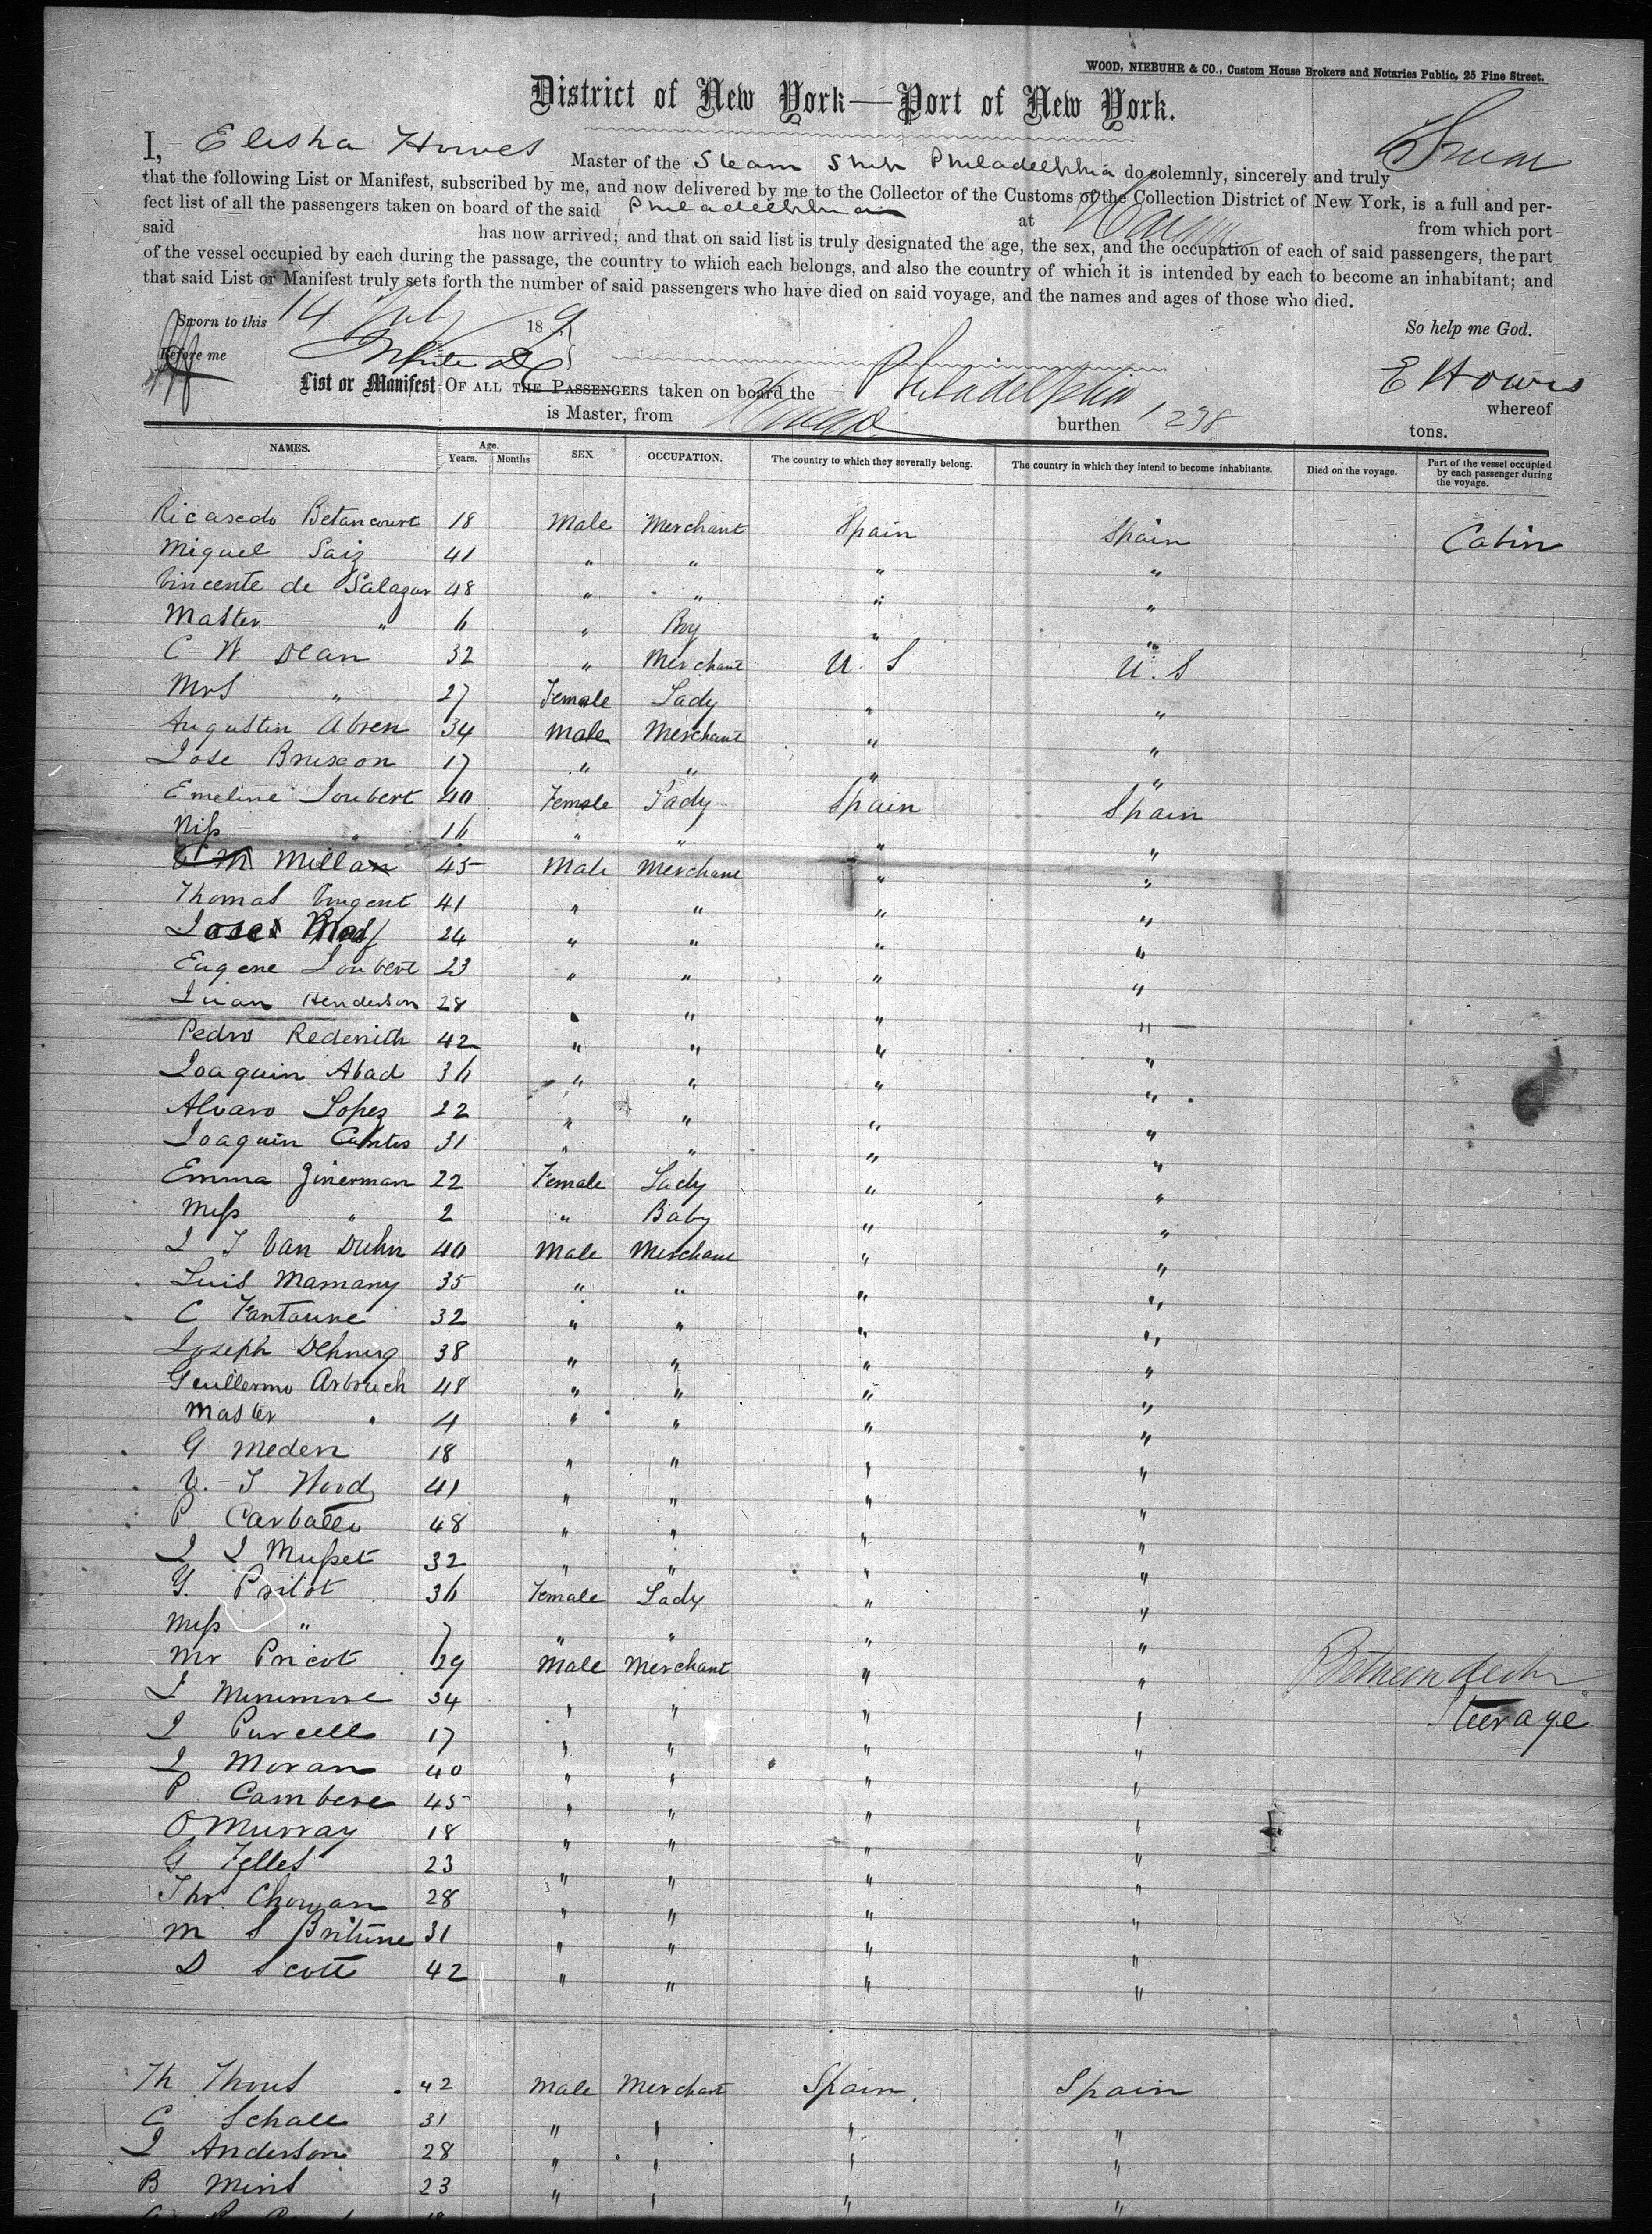 WOOD, NIEBUHR & CO., Custom House Brokers and Notaries Public, 25 Pine Street.
District of New York—Port of New York.
I, Elisha Howes Master of the Steam Ship Philadelphia do solemnly, sincerely and truly
that the following List or Manifest, subscribed by me, and now delivered by me to the Collector of the Customs of the Collection District of New York, is a full and per-
fect list of all the passengers taken on board of the said Philadelphia at from which port
said has now arrived; and that on said list is truly designated the age, the sex, and the occupation of each of said passengers, the part
of the vessel occupied by each during the passage, the country to which each belongs, and also the country of which it is intended by each to become an inhabitant; and
that said List or Manifest truly sets forth the number of said passengers who have died on said voyage, and the names and ages of those who died.
Sworn to this 14 July 18 So help me God.
Before me E Howes
List or Manifest OF ALL THE PASSENGERS taken on board the Philadelphia whereof
is Master, from burthen 1298 tons.
NAMES. Age. Years. Months SEX OCCUPATION. The country to which they severally belong. The country in which they intend to become inhabitants. Died on the voyage. Part of the vessel occupied by each passenger during the voyage.
Ricardo Betancourt 18 Male Merchant Spain Spain Cabin
Miguel Saiz 41 " " " "
Vincente de Salazar 48 " " " "
Master " 6 " Boy " "
C W Dean 32 " Merchant U. S U. S
Mrs " 27 Female Lady " "
Augustin Abren 34 Male Merchant " "
Jose Bruscon 17 " " " "
Emeline Joubert 40 Female Lady Spain Spain
Miss " 16 " " " "
Millan 45 Male Merchant " "
Thomas Vingent 41 " " " "
Jose 24 " " " "
Eugene Joubert 23 " " " "
Juan Henderson 28 " " " "
Pedro Redenith 42 " " " "
Joaquin Abad 36 " " " "
Alvaro Lopez 22 " " " "
Joaquin 31 " " " "
Emma Zinerman 22 Female Lady " "
Miss " 2 " Baby " "
J J Van Duhn 40 Male Merchant " "
Luis Mamany 35 " " " "
C Fantaune 32 " " " "
Joseph Dehning 38 " " " "
Guillermo Arbruch 48 " " " "
Master " 4 " " " "
G Meden 18 " " " "
V. J Wood 41 " " " "
P Carballo 48 " " " "
J J Musset 32 " " " "
Y. 36 Female Lady " "
Miss " 7 " " " "
Mr Pricot 29 Male Merchant " "
34 " " " " Between decks
J Purcell 17 " " " " Steerage
J Moran 40 " " " "
P Cambere 45 " " " "
O Murray 18 " " " "
G Felles 23 " " " "
Tho. 28 " " " "
M S 31 " " " "
D Scott 42 " " " "
Th 42 Male Merchant Spain. Spain
C Schall 31 " " " "
J Anderson 28 " " " "
B Mins 23 " " " "